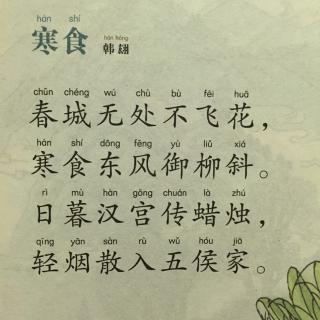 hán shí
寒食
hán hóng
韩翃
chūn chéng wú chù bù fēi huā
春城无处不飞花，
hán shí dōng fēng yù liǔ xiá
寒食东风御柳斜。
rì mù hàn gōng chuán là zhú
日暮汉宫传蜡烛，
qīng yān sàn rù wǔ hóu jiā
轻烟散入五侯家。